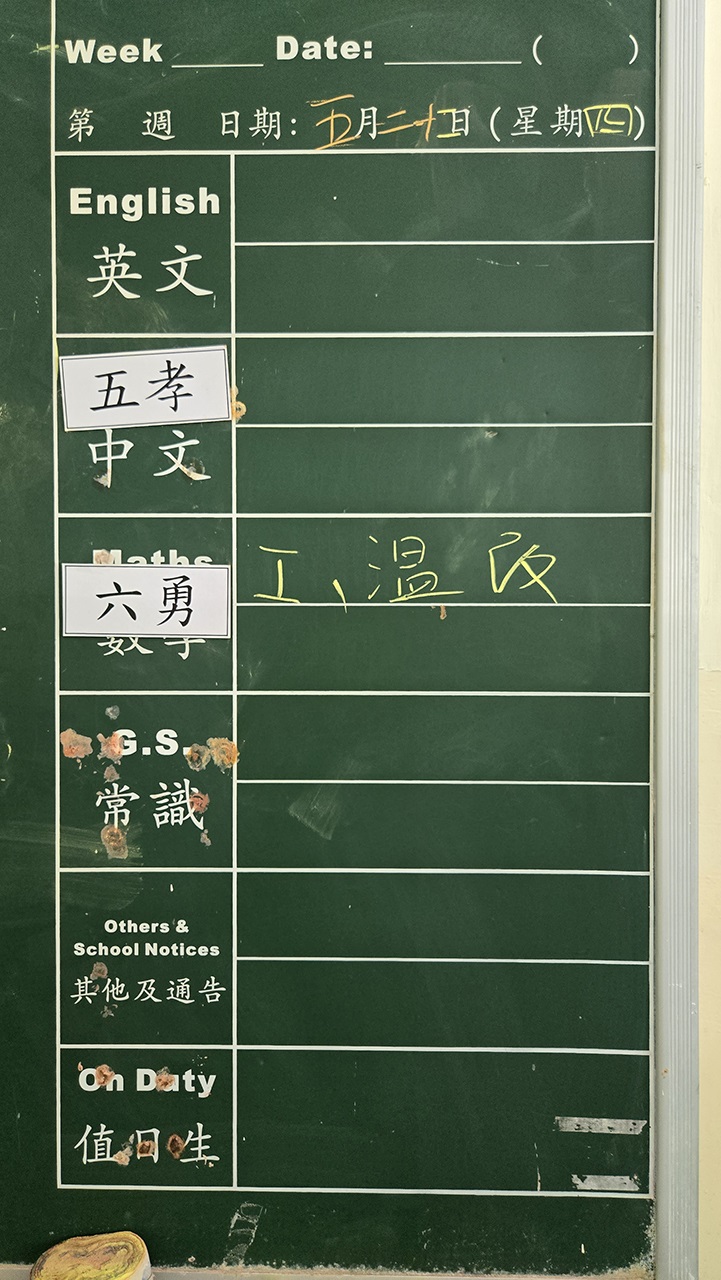 Week ______ Date: _________ ( )
第 週 日期: 五月二十二日 (星期四)
English
英文
五孝
中文
Maths
工、溫改
六勇
數學
G.S.
常識
Others &
School Notices
其他及通告
On Duty
值日生